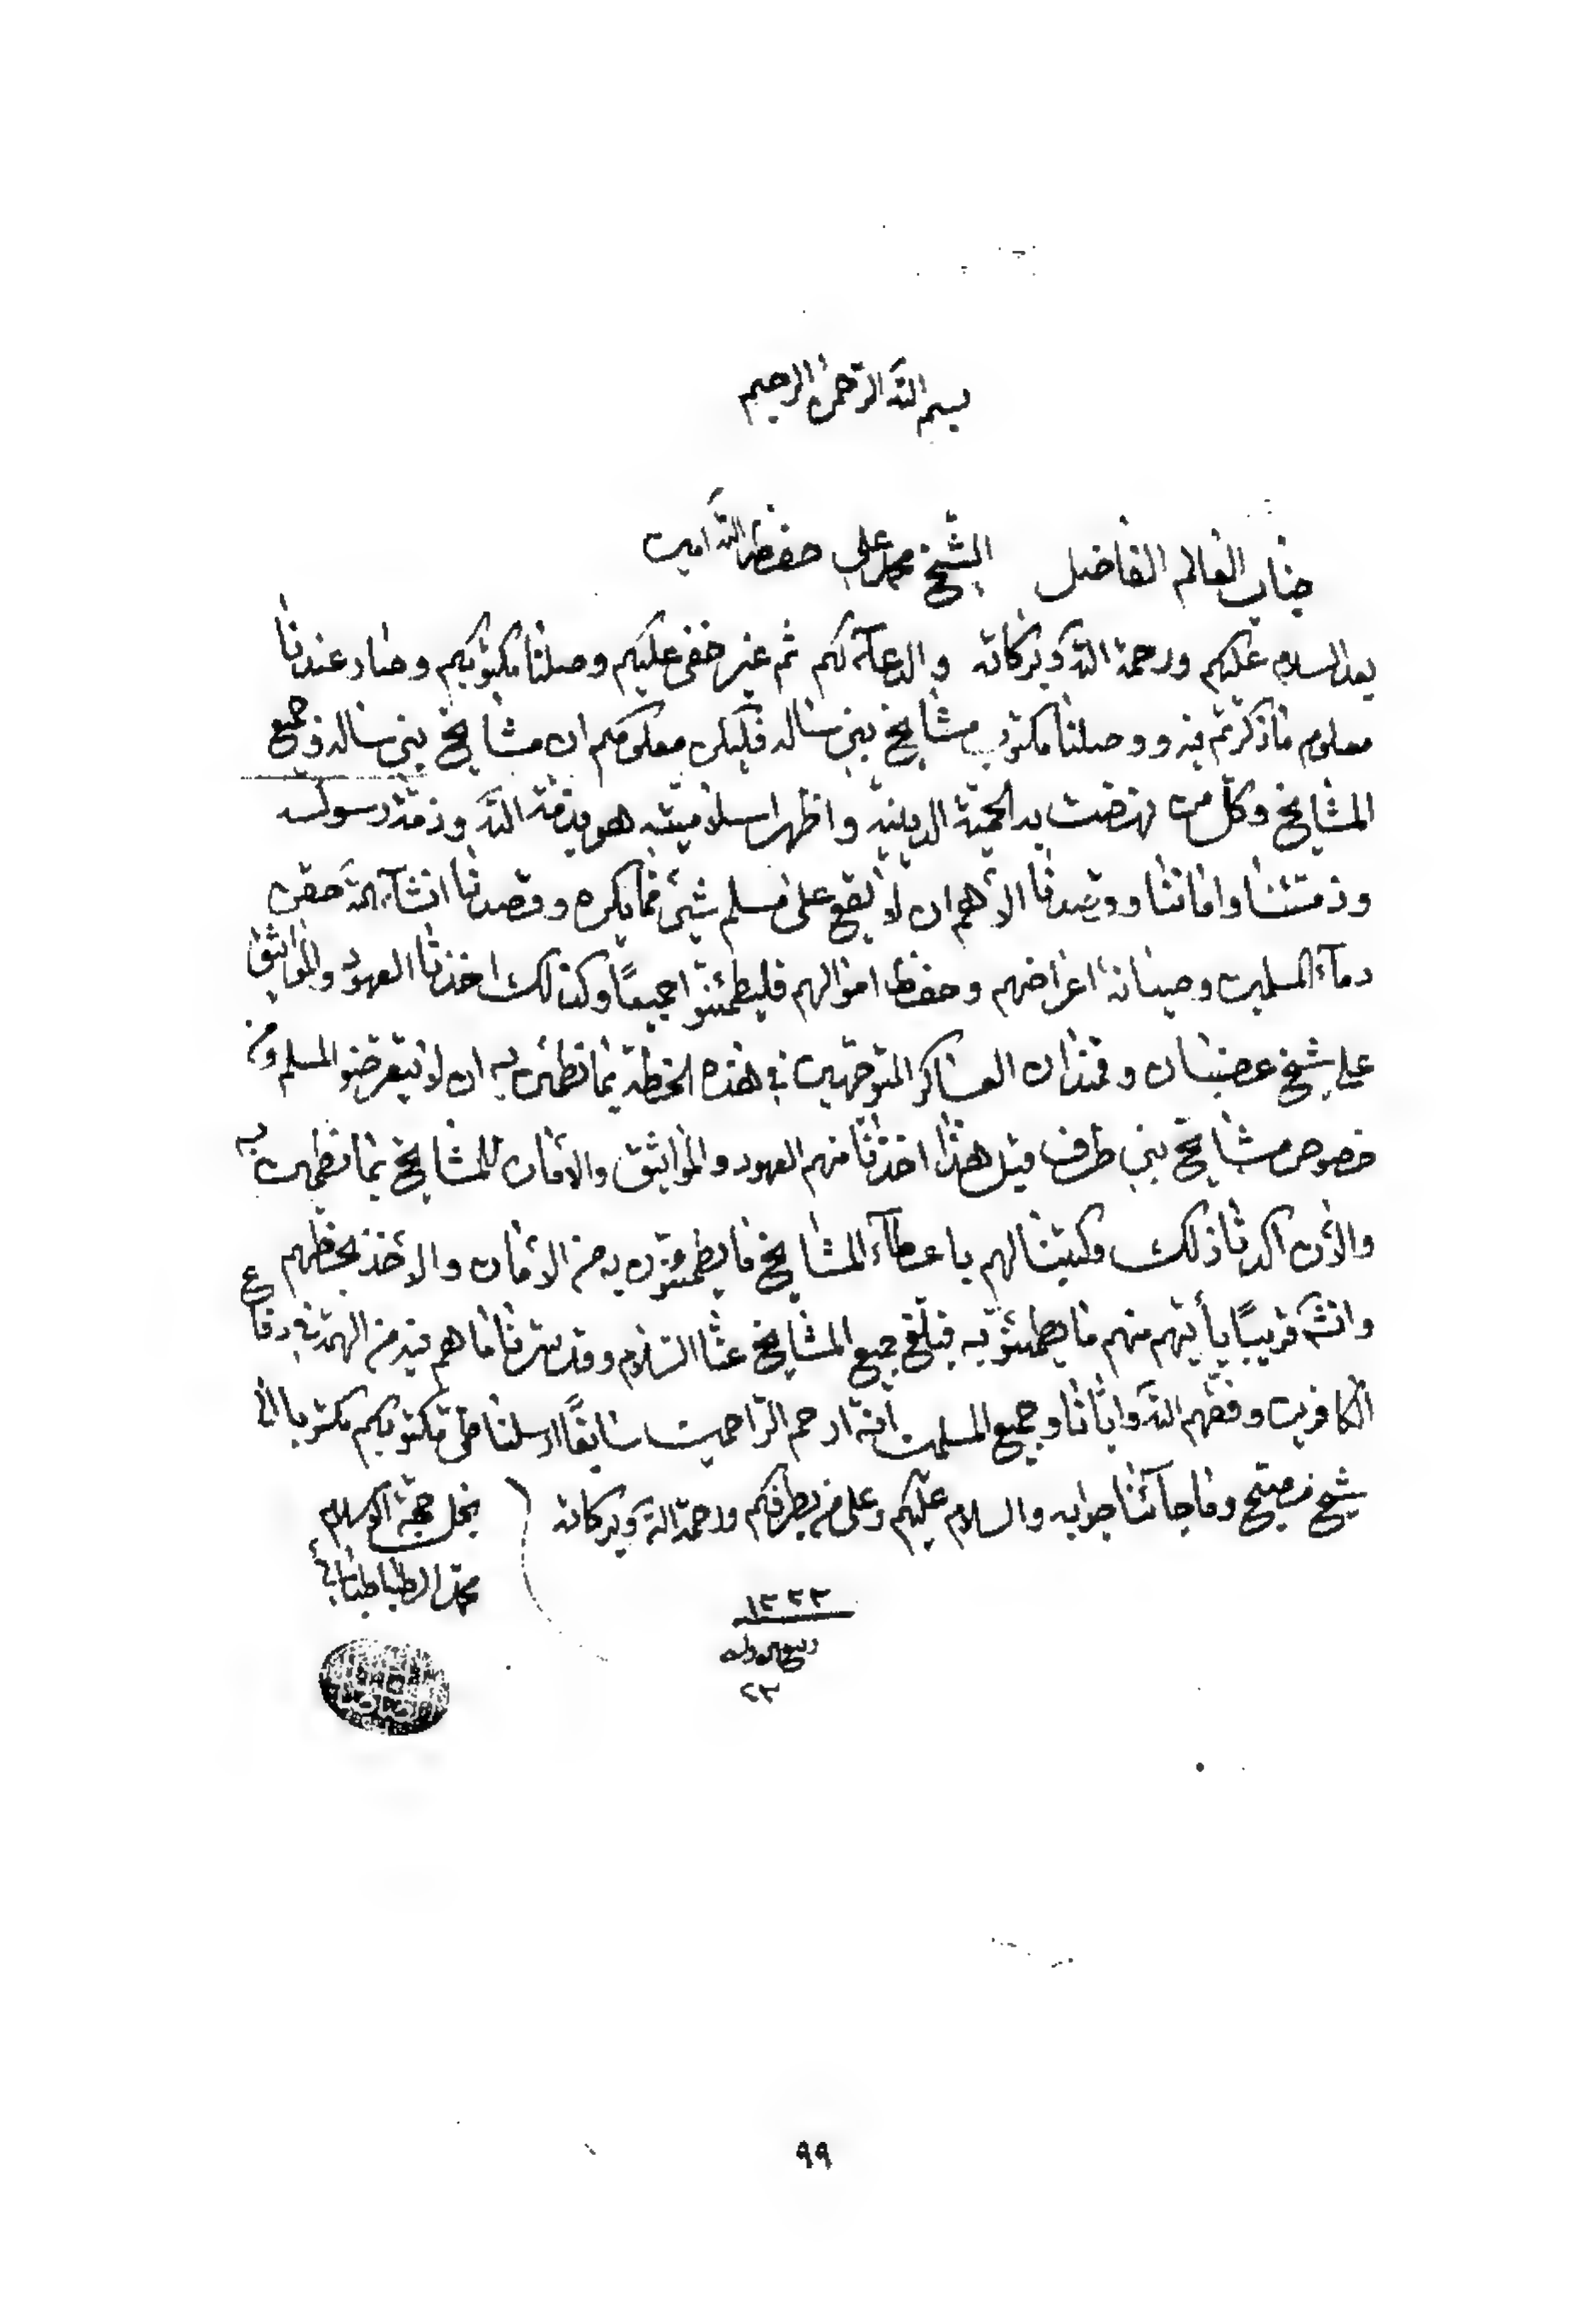 بسم الله الرحمن الرحيم
جناب العالم الفاضل الشيخ محمد علي حفظه الله امين
بعد السلام عليكم ورحمة الله وبركاته والدعآء لكم ثم غير خفي عليكم وصلنا مكتوبكم وصار عندنا
معلوم ماذكرتم فيه ووصلنا مكتوب مشايخ بني ساله فليكن معلومكم ان مشايخ بني ساله وجميع
المشايخ وكل من نهضت به الحمية الدينية واظهر اسلاميته هو بذمة الله وذمة رسوله
وذمتنا واماننا وقصدنا الأهم ان لا يقع على مسلم شيئ مما يكره وقصدنا انشآء الله حقن
دمآء المسلمين وصيانة اعراضهم وحفظ اموالهم فليطمئنوا جميعًا وكذلك اخذنا العهود والمواثيق
على شيخ غضبان وقمندان العساكر المتوجهين في هذه الخطة بما نطمئن به ان لا يتعرضوا لمسلم ومن
خصوص مشايخ بني طرف قبل هذا اخذنا منهم العهود والمواثيق والأمان للمشايخ بما نطمئن به
والأن اكدنا ذلك وكتبنا لهم باعطآء المشايخ ما يطمئنون به من الأمان والأخذ بحظهم
وانشـ قريبًا يأتيهم منهم ما يطمئنو به فبلغ جميع المشايخ عنا السلام وقد سرنا ما هم فيه من الهمة في دفاع
الكافرين وفقهم الله وايانا وجميع المسلمين انه ارحم الراحمين سابقًا ارسلنا طي مكتوبكم مكتوبا الى
شيخ مصبح وما جآئنا جوابه والسلام عليكم وعلى من بطرفكم ورحمة الله وبركاته
نجل حجة الاسلام
محمد الطباطبائي
١٣٣٣
ربيع
٢٣
٩٩